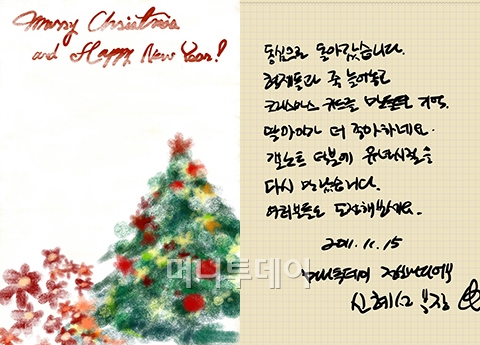 Merry Christmas
and Happy New Year!
동심으로 돌아갔습니다.
형제들과 죽 늘어놓고
크리스마스 카드를 만들던 기억.
딸아이가 더 좋아하네요.
갤노트 덕분에 유년시절을
다시 만났습니다.
여러분도 도전해보세요.
2011. 11. 15
머니투데이 정보미디어부
신혜선 부장
머니투데이